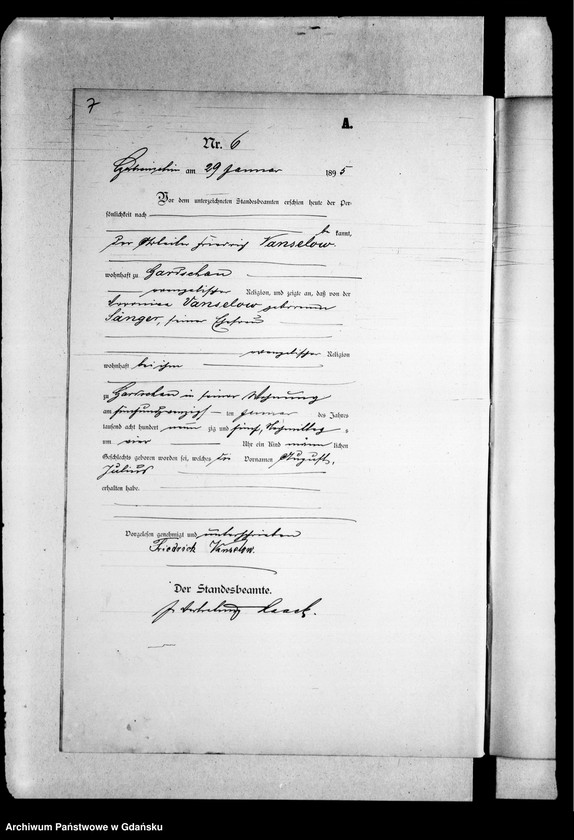 7
A.
Nr. 6
am 29 Januar 1895
Vor dem unterzeichneten Standesbeamten erschien heute der Per-
sönlichkeit nach
be kannt,
der Arbeiter Friedrich Vanselow
wohnhaft zu Gardschau
evangelischer Religion, und zeigte an, daß von der
Vanselow geborenen
Sänger, seiner Ehefrau
evangelischer Religion
wohnhaft bei ihm
zu Gardschau in seiner Wohnung
am fünfundzwanzigsten Januar des Jahres
tausend acht hundert neun zig und fünf, Vormittag s
um vier Uhr ein Kind männ lichen
Geschlechts geboren worden sei, welches die Vornamen August,
Julius
erhalten habe.
Vorgelesen genehmigt und unterschrieben
Friedrich Vanselow.
Der Standesbeamte.
In Vertretung Haack.
Archiwum Państwowe w Gdańsku